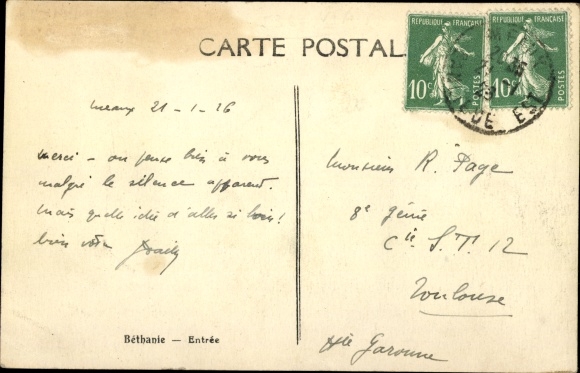 CARTE POSTALE
REPUBLIQUE FRANÇAISE
10c
POSTES
REPUBLIQUE FRANÇAISE
10c
POSTES
Meaux 21-1-26
merci - on pense bien à vous
malgré le silence apparent.
Mais quelle idée d'aller si loin!
bien votre
Béthanie — Entrée
Monsieur R. Page
8e génie
Cie S.T. 12
Toulouse
Hte Garonne